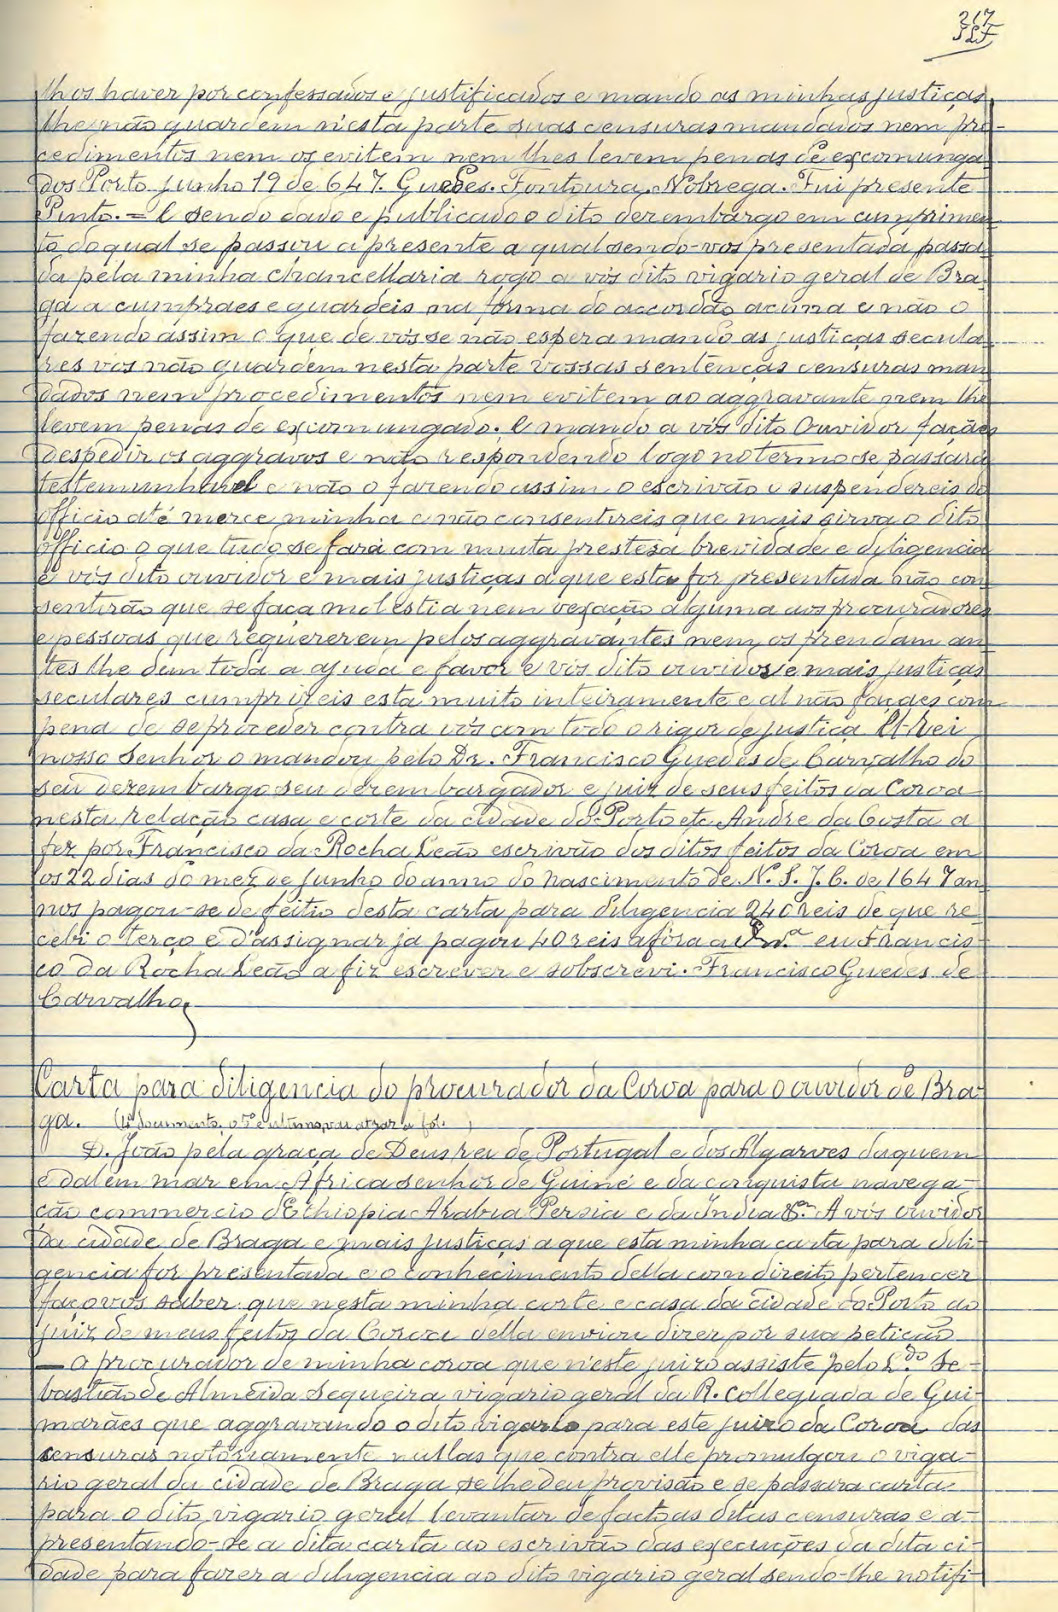 317
lhos haver por confessados e justificados e mando as minhas justiças
lhe não guardem n'esta parte suas censuras mandados nem pro-
cedimentos nem os evitem nem lhes levem penas de excomunga
dos Porto junho 19 de 647. Guedes. Fontoura. Nobrega. Fui presente
Pinto. = E sendo dado e publicado o dito dezembargo em cumprimen
to do qual se passou a presente a qual sendo-vos presentada passa
da pela minha chancellaria rogo a vós dito vigario geral de Bra
ga a cumpraes e guardeis na fórma do accordão acima e não o
fazendo assim o que de vós se não espera mando as justiças secula
res vos não guardem nesta parte vossas sentenças censuras man
dados nem procedimentos nem evitem ao aggravante nem lhe
levem penas de excomungado; E mando a vós dito Ouvidor façaes
despedir os aggravos e não respondendo logo no termo se passará
testemunhavel e não o fazendo assim o escrivão o suspendereis do
officio até merce minha e não consentireis que mais sirva o dito
officio o que tudo se fará com muita presteza brevidade e diligencia
e vós dito ouvidor e mais justiças a que esta for presentada não con
sentirão que se faça molestia nem vexação alguma aos procuradores
e pessoas que requererem pelos aggravantes nem os prendam an
tes lhe dem toda a ajuda e favor e vós dito ouvidor e mais justiças
seculares cumprireis esta muito inteiramente e al não façaes com
pena de se proceder contra vós com todo o rigor de justiça El-rei
nosso Senhor o mandou pelo Dr. Francisco Guedes de Carvalho do
seu dezembargo seu dezembargador e juiz de seus feitos da Coroa
nesta relação casa e corte da cidade do Porto etc André da Costa a
fez por Francisco da Rocha Leão escrivão dos ditos feitos da Coroa em
os 22 dias do mez de junho do anno do nascimento de N. S. J. C. de 1647 an
nos pagou-se de feitio desta carta para diligencia 240 reis de que re
cebi o terço e d'assignar ja pagou 40 reis afóra a eu Francis-
co da Rocha Leão a fiz escrever e subscrevi. Francisco Guedes de
Carvalho
Carta para diligencia do procurador da Coroa para o ouvidor de Bra-
ga. documento,
D. João pela graça de Deus rei de Portugal e dos Algarves daquem
e dalém mar em Africa senhor de Guiné e da conquista navega-
ção commercio d'Ethiopia Arabia Persia e da India &ª A vós ouvidor
da cidade de Braga e mais justiças a que esta minha carta para dili-
gencia for presentada e o conhecimento della com direito pertencer
faço vos saber que nesta minha corte e casa da cidade do Porto ao
juiz de meus feitos da Coroa della enviou dizer por sua petição
— O procurador de minha coroa que n'este juizo assiste pelo L.do Se-
bastião de Almeida Sequeira vigario geral da R. Collegiada de Gui-
marães que aggravando o dito vigario para este juizo da Coroa das
censuras notoriamente nullas que contra elle promulgou o viga-
rio geral da cidade de Braga se lhe deu provisão e se passara carta
para o dito vigario geral levantar de facto as ditas censuras e a-
presentando-se a dita carta ao escrivão das execuções da dita ci-
dade para fazer a diligencia ao dito vigario geral sendo-lhe notifi-